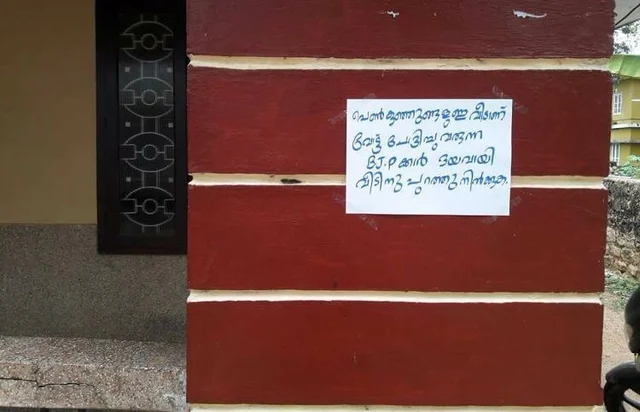 പെൺകുഞ്ഞുങ്ങളുള്ള വീടാണ്
വോട്ട് ചോദിച്ചു വരുന്ന
BJ.P ക്കാർ ദയവായി
വീടിനു പുറത്തു നിൽക്കുക.